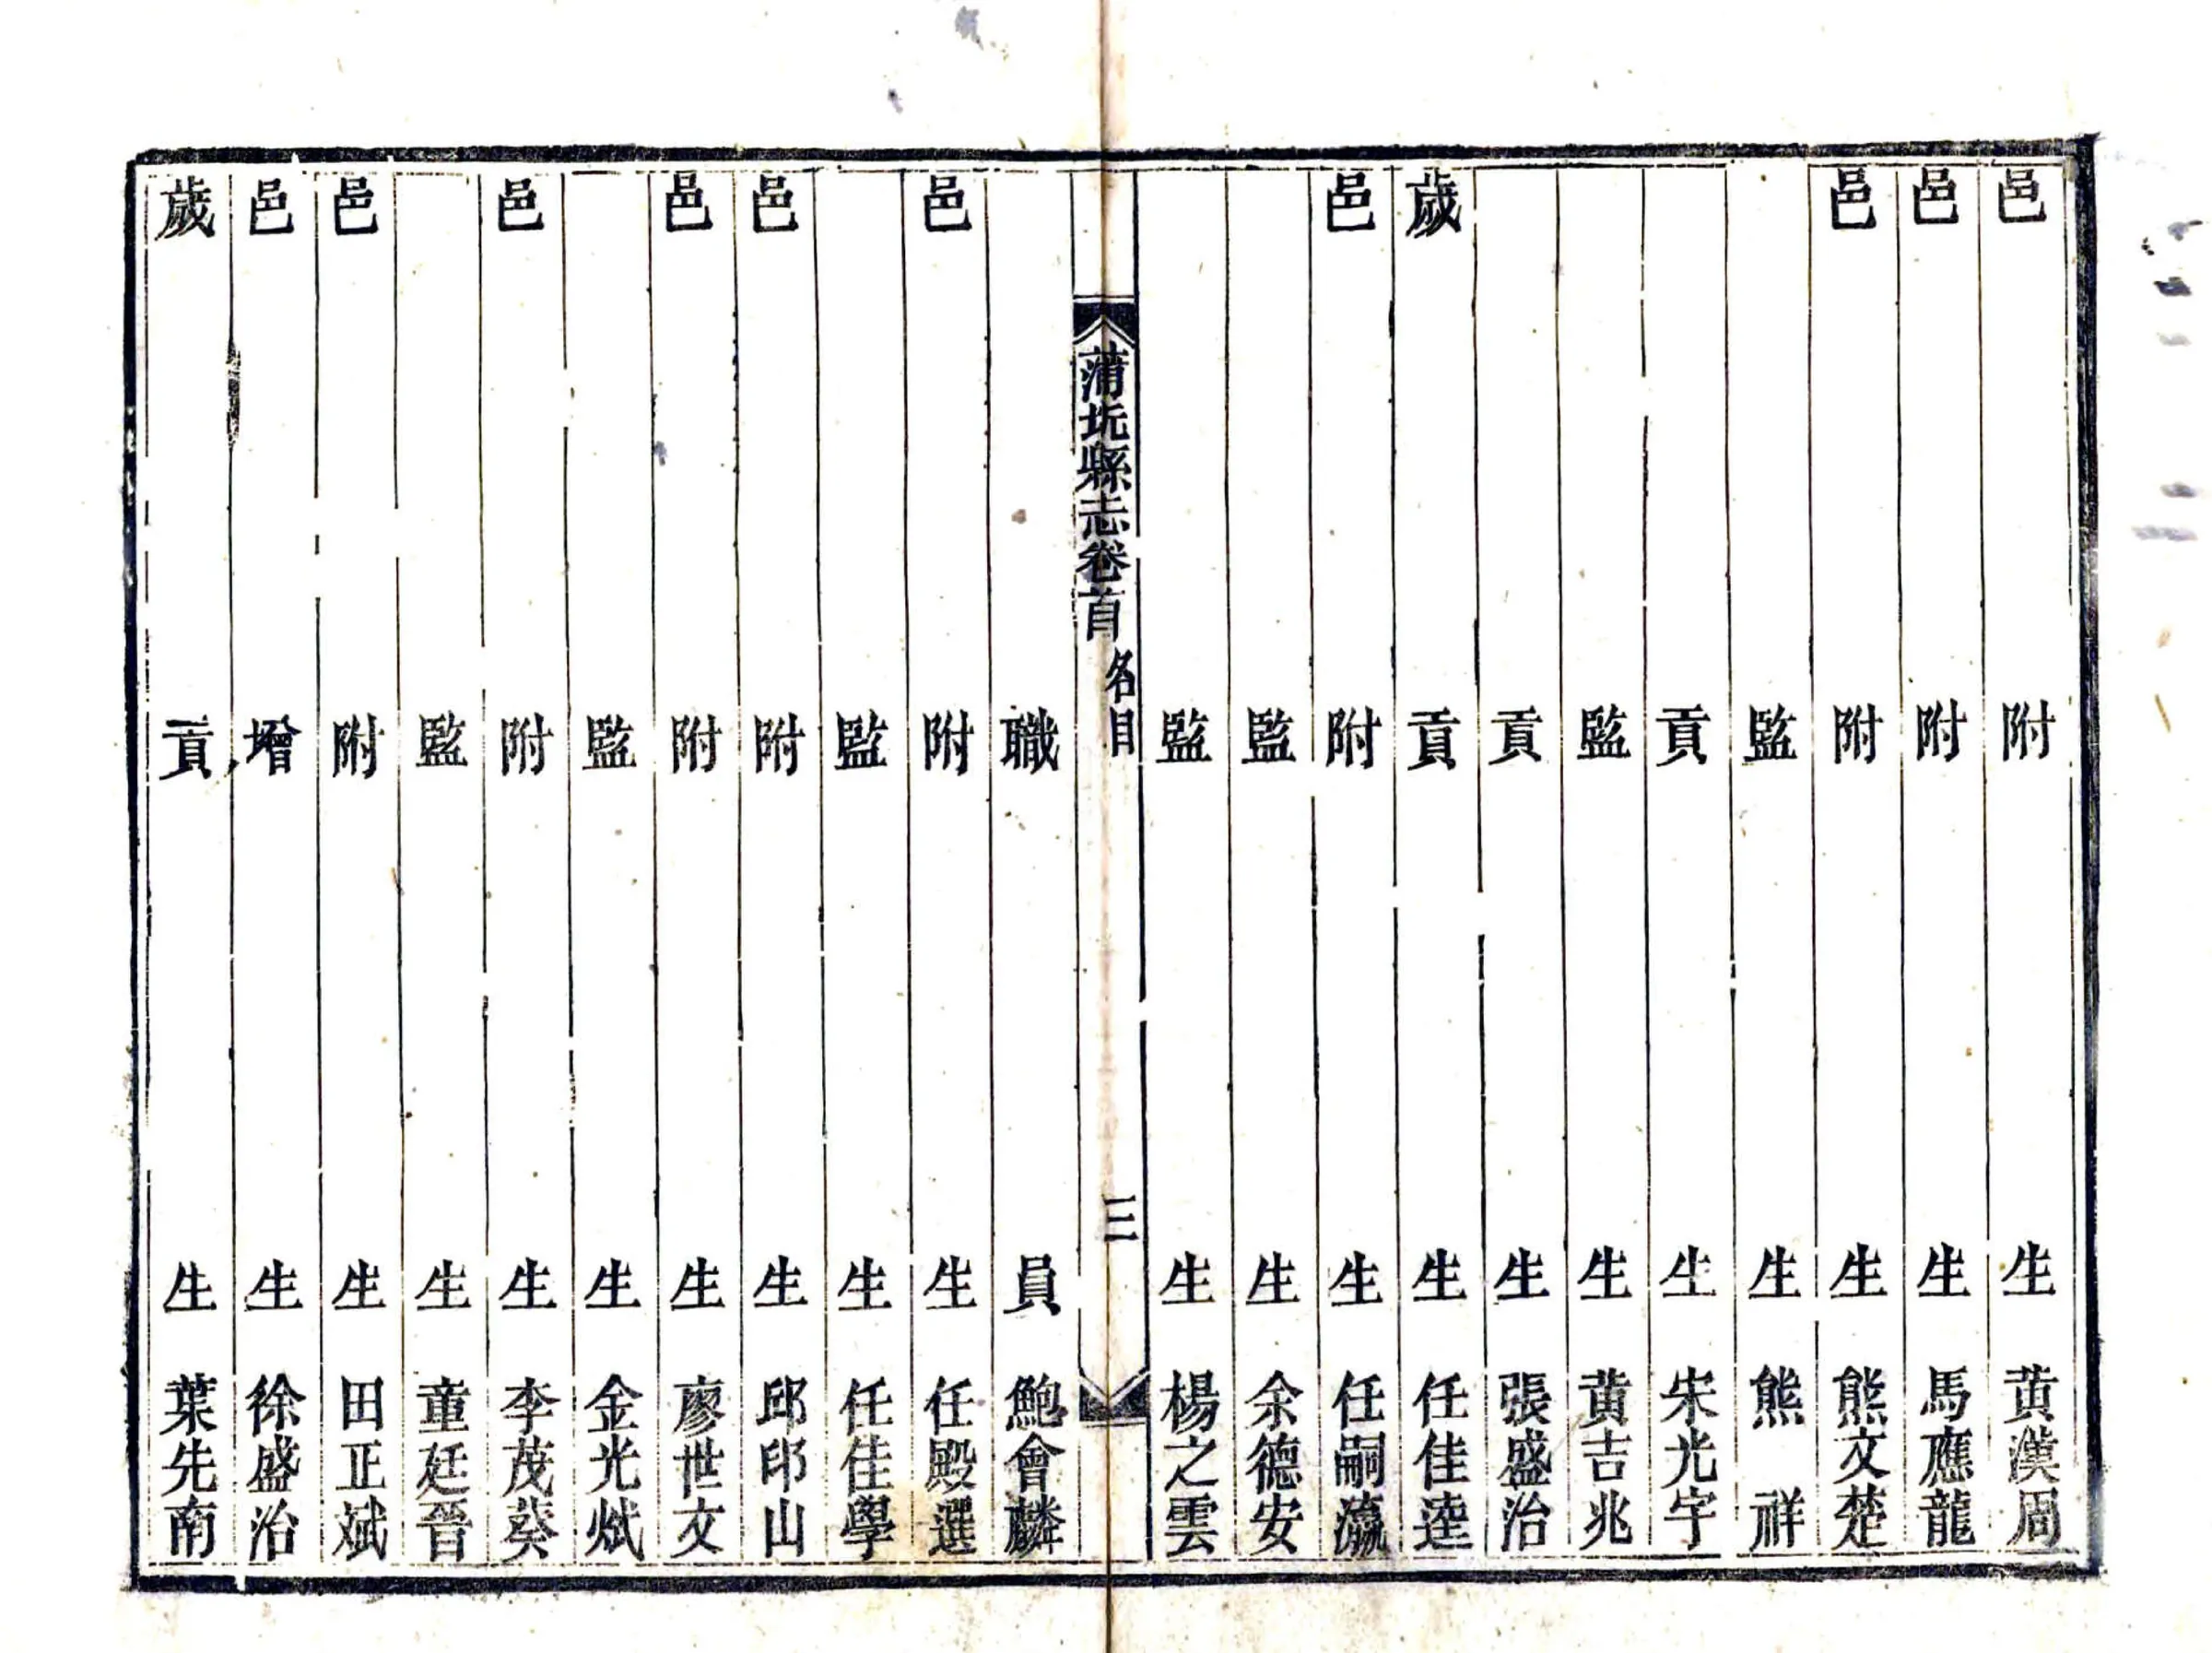 邑附生黃漢周
邑附生馬應龍
邑附生熊文楚
監生熊祥
貢生宋光宇
監生黃吉兆
貢生張盛治
歲貢生任佳逵
邑附生任嗣瀛
監生余德安
監生楊之雲
蒲圻縣志卷首 名目 三
職員鮑會麟
邑附生任殿選
監生任佳學
邑附生邱邱山
邑附生廖世文
監生金光斌
邑附生李茂葵
監生童廷晉
邑附生田正斌
邑增生徐盛治
歲貢生葉先南